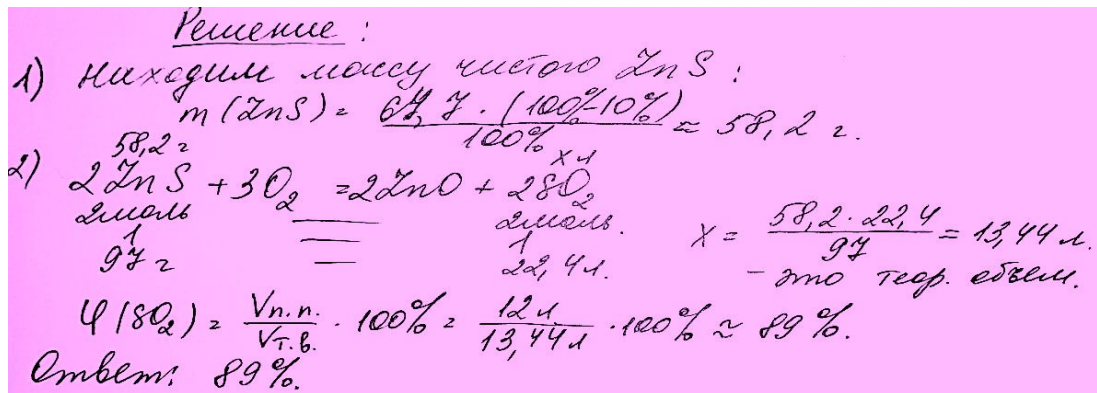 Решение:
1) Находим массу чистого ZnS:
m(ZnS) = 67,7 · (100%-10%) / 100% ≈ 58,2 г.
58,2 г   x л
2) 2ZnS + 3O₂ = 2ZnO + 2SO₂
2моль   2моль.   x = 58,2 · 22,4 / 97 = 13,44 л.
1   1
97 г   22,4 л.   - это теор. объем.
φ(SO₂) = Vп.п. / Vт.в. · 100% = 12 л / 13,44 л · 100% ≈ 89%.
Ответ: 89%.